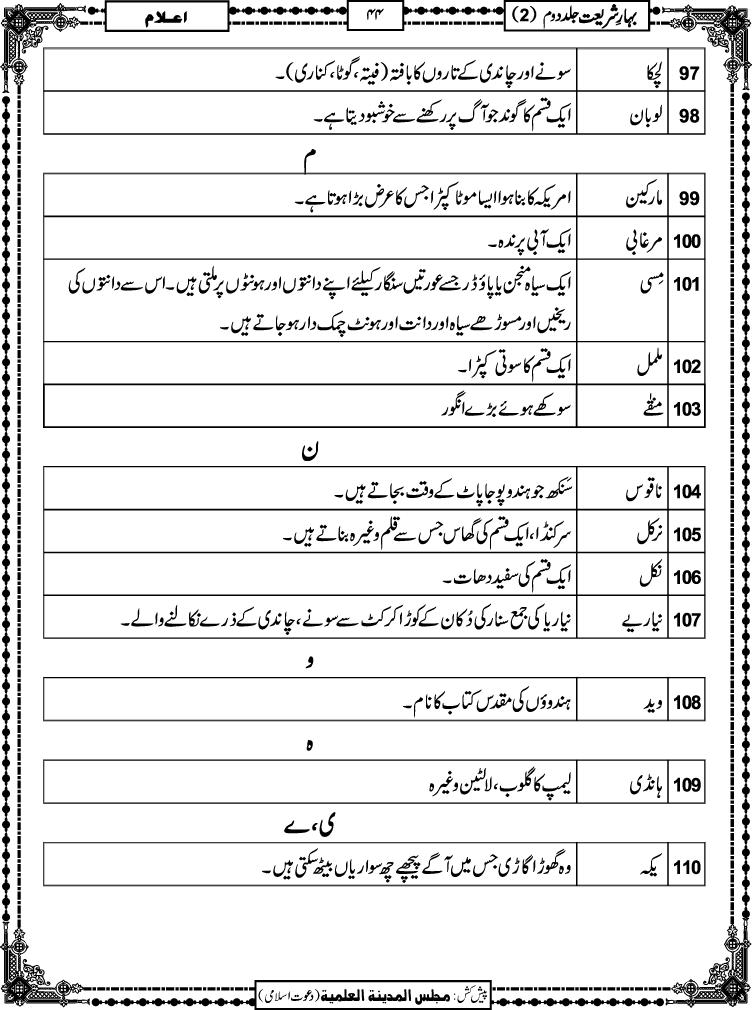 بہارِشریعت جلد دوم (2) ۴۴ اعلام
97 لچکا سونے اور چاندی کے تاروں کا بافتہ (فیتہ، گوٹا، کناری)۔
98 لوبان ایک قسم کا گوند جو آگ پر رکھنے سے خوشبو دیتا ہے۔
م
99 مارکین امریکہ کا بنا ہوا ایسا موٹا کپڑا جس کا عرض بڑا ہوتا ہے۔
100 مرغابی ایک آبی پرندہ۔
101 مِسی ایک سیاہ منجن یا پاؤڈر جسے عورتیں سنگار کیلئے اپنے دانتوں اور ہونٹوں پر ملتی ہیں۔ اس سے دانتوں کی
ریخیں اور مسوڑھے سیاہ اور دانت اور ہونٹ چمک دار ہو جاتے ہیں۔
102 ململ ایک قسم کا سوتی کپڑا۔
103 منقّے سوکھے ہوئے بڑے انگور
ن
104 ناقوس سَنکھ جو ہندو پوجا پاٹ کے وقت بجاتے ہیں۔
105 نرکل سرکنڈا، ایک قسم کی گھاس جس سے قلم وغیرہ بناتے ہیں۔
106 نکل ایک قسم کی سفید دھات۔
107 نیاریے نیاریا کی جمع سنار کی دُکان کے کوڑا کرکٹ سے سونے، چاندی کے ذرے نکالنے والے۔
و
108 وید ہندوؤں کی مقدس کتاب کا نام۔
ہ
109 ہانڈی لیمپ کا گلوب، لالٹین وغیرہ
ی، ے
110 یکہ وہ گھوڑا گاڑی جس میں آگے پیچھے چھ سواریاں بیٹھ سکتی ہیں۔
پیش کش: مجلس المدینة العلمیة (دعوت اسلامی)